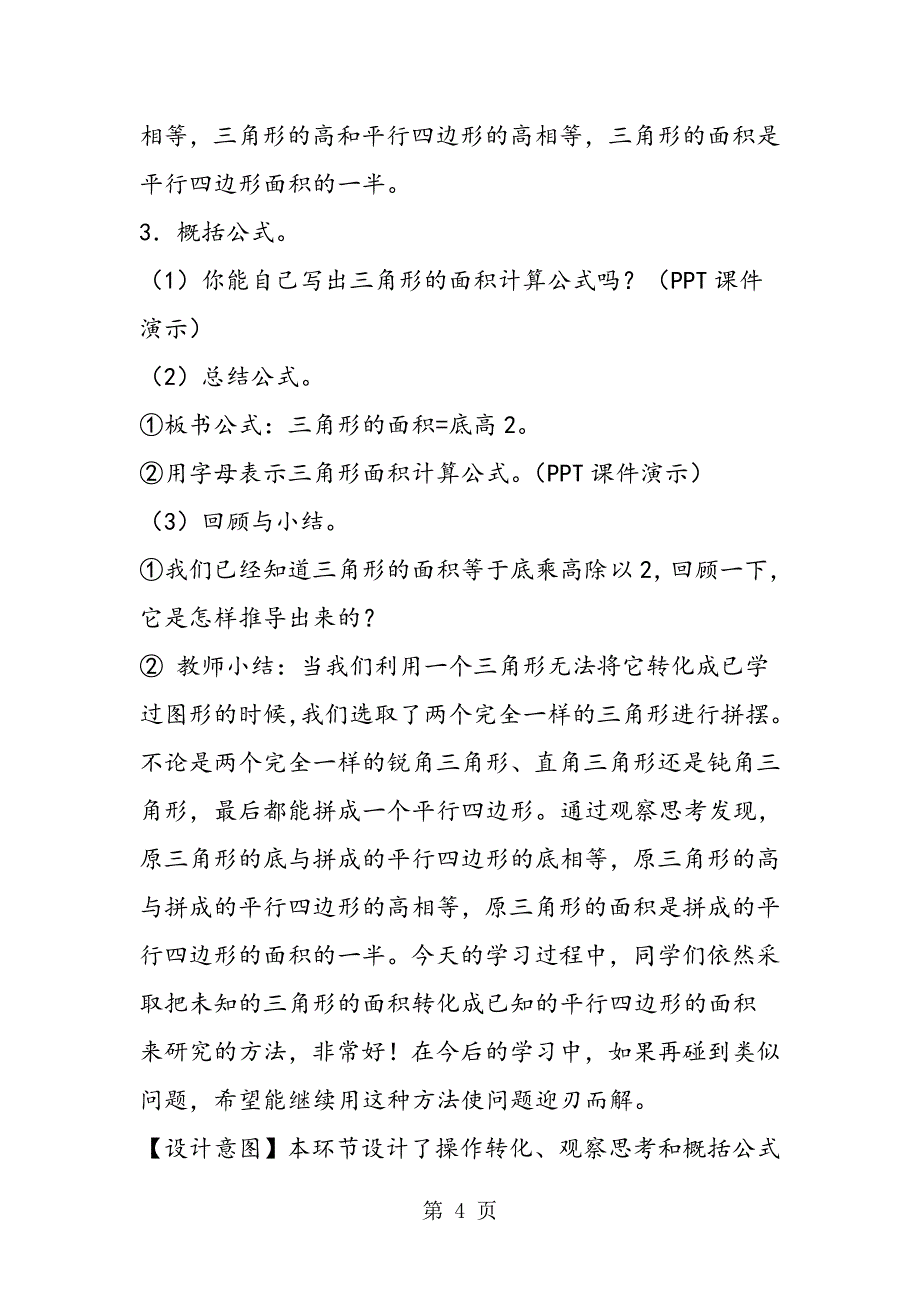 相等，三角形的高和平行四边形的高相等，三角形的面积是
平行四边形面积的一半。
3．概括公式。
（1）你能自己写出三角形的面积计算公式吗？（PPT 课件
演示）
（2）总结公式。
①板书公式：三角形的面积=底高 2。
②用字母表示三角形面积计算公式。（PPT 课件演示）
（3）回顾与小结。
①我们已经知道三角形的面积等于底乘高除以 2，回顾一下，
它是怎样推导出来的？
② 教师小结：当我们利用一个三角形无法将它转化成已学
过图形的时候，我们选取了两个完全一样的三角形进行拼摆。
不论是两个完全一样的锐角三角形、直角三角形还是钝角三
角形，最后都能拼成一个平行四边形。通过观察思考发现，
原三角形的底与拼成的平行四边形的底相等，原三角形的高
与拼成的平行四边形的高相等，原三角形的面积是拼成的平
行四边形的面积的一半。今天的学习过程中，同学们依然采
取把未知的三角形的面积转化成已知的平行四边形的面积
来研究的方法，非常好！在今后的学习中，如果再碰到类似
问题，希望能继续用这种方法使问题迎刃而解。
【设计意图】本环节设计了操作转化、观察思考和概括公式
第 4 页